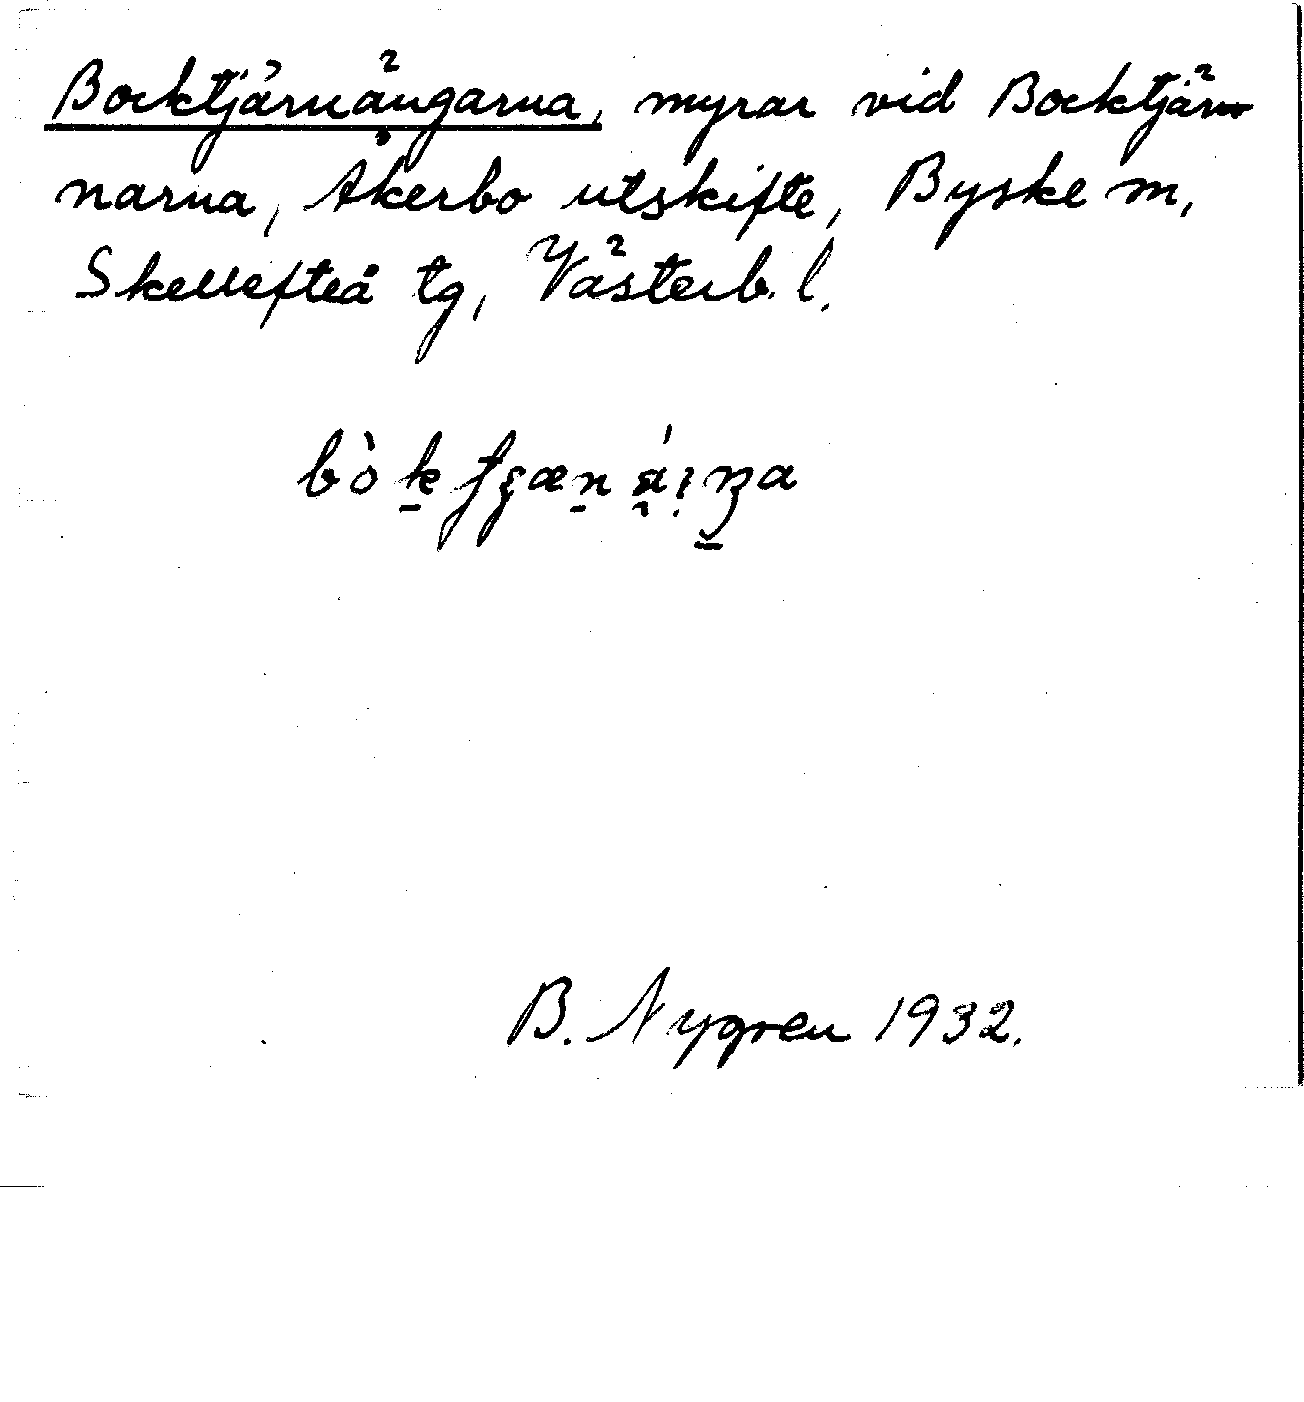 Bocktjärnängarna, myrar vid Bocktjär-
narna, Åkerbo utskifte, Byske m,
Skellefteå tg, Västerb. l.
B. Nygren 1932.